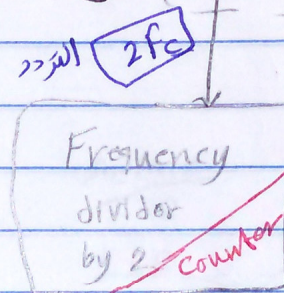 التردد 2fc
Frequency
divider
by 2
counter